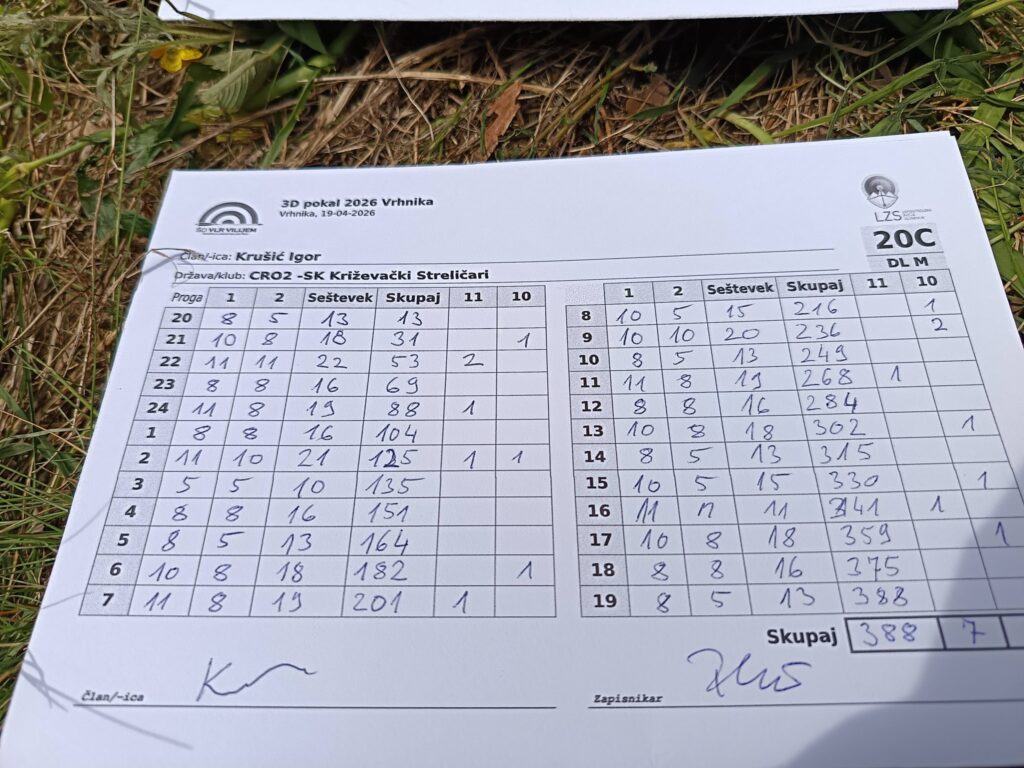 3D pokal 2026 Vrhnika
Vrhnika, 19-04-2026
ŠD VLR VILIJEM
LZS
20C
DL M
Član/-ica: Krušić Igor
Država/klub: CRO2 -SK Križevački Streličari
Proga 1 2 Seštevek Skupaj 11 10
20 8 5 13 13
21 10 8 18 31 1
22 11 11 22 53 2
23 8 8 16 69
24 11 8 19 88 1
1 8 8 16 104
2 11 10 21 125 1 1
3 5 5 10 135
4 8 8 16 151
5 8 5 13 164
6 10 8 18 182 1
7 11 8 19 201 1
1 2 Seštevek Skupaj 11 10
8 10 5 15 216 1
9 10 10 20 236 2
10 8 5 13 249
11 11 8 19 268 1
12 8 8 16 284
13 10 8 18 302 1
14 8 5 13 315
15 10 5 15 330 1
16 11 n 11 341 1
17 10 8 18 359 1
18 8 8 16 375
19 8 5 13 388
Skupaj 388 7
Član/-ica
Zapisnikar